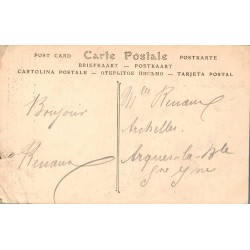 POST CARD Carte Postale POSTKARTE
BRIEFKAART — POSTKAART
CARTOLINA POSTALE — ОТКРЫТОЕ ПИСЬМО — TARJETA POSTAL
Bonjour
Renaux
Mlle Renaux
Archelles
Arques-la-Blle